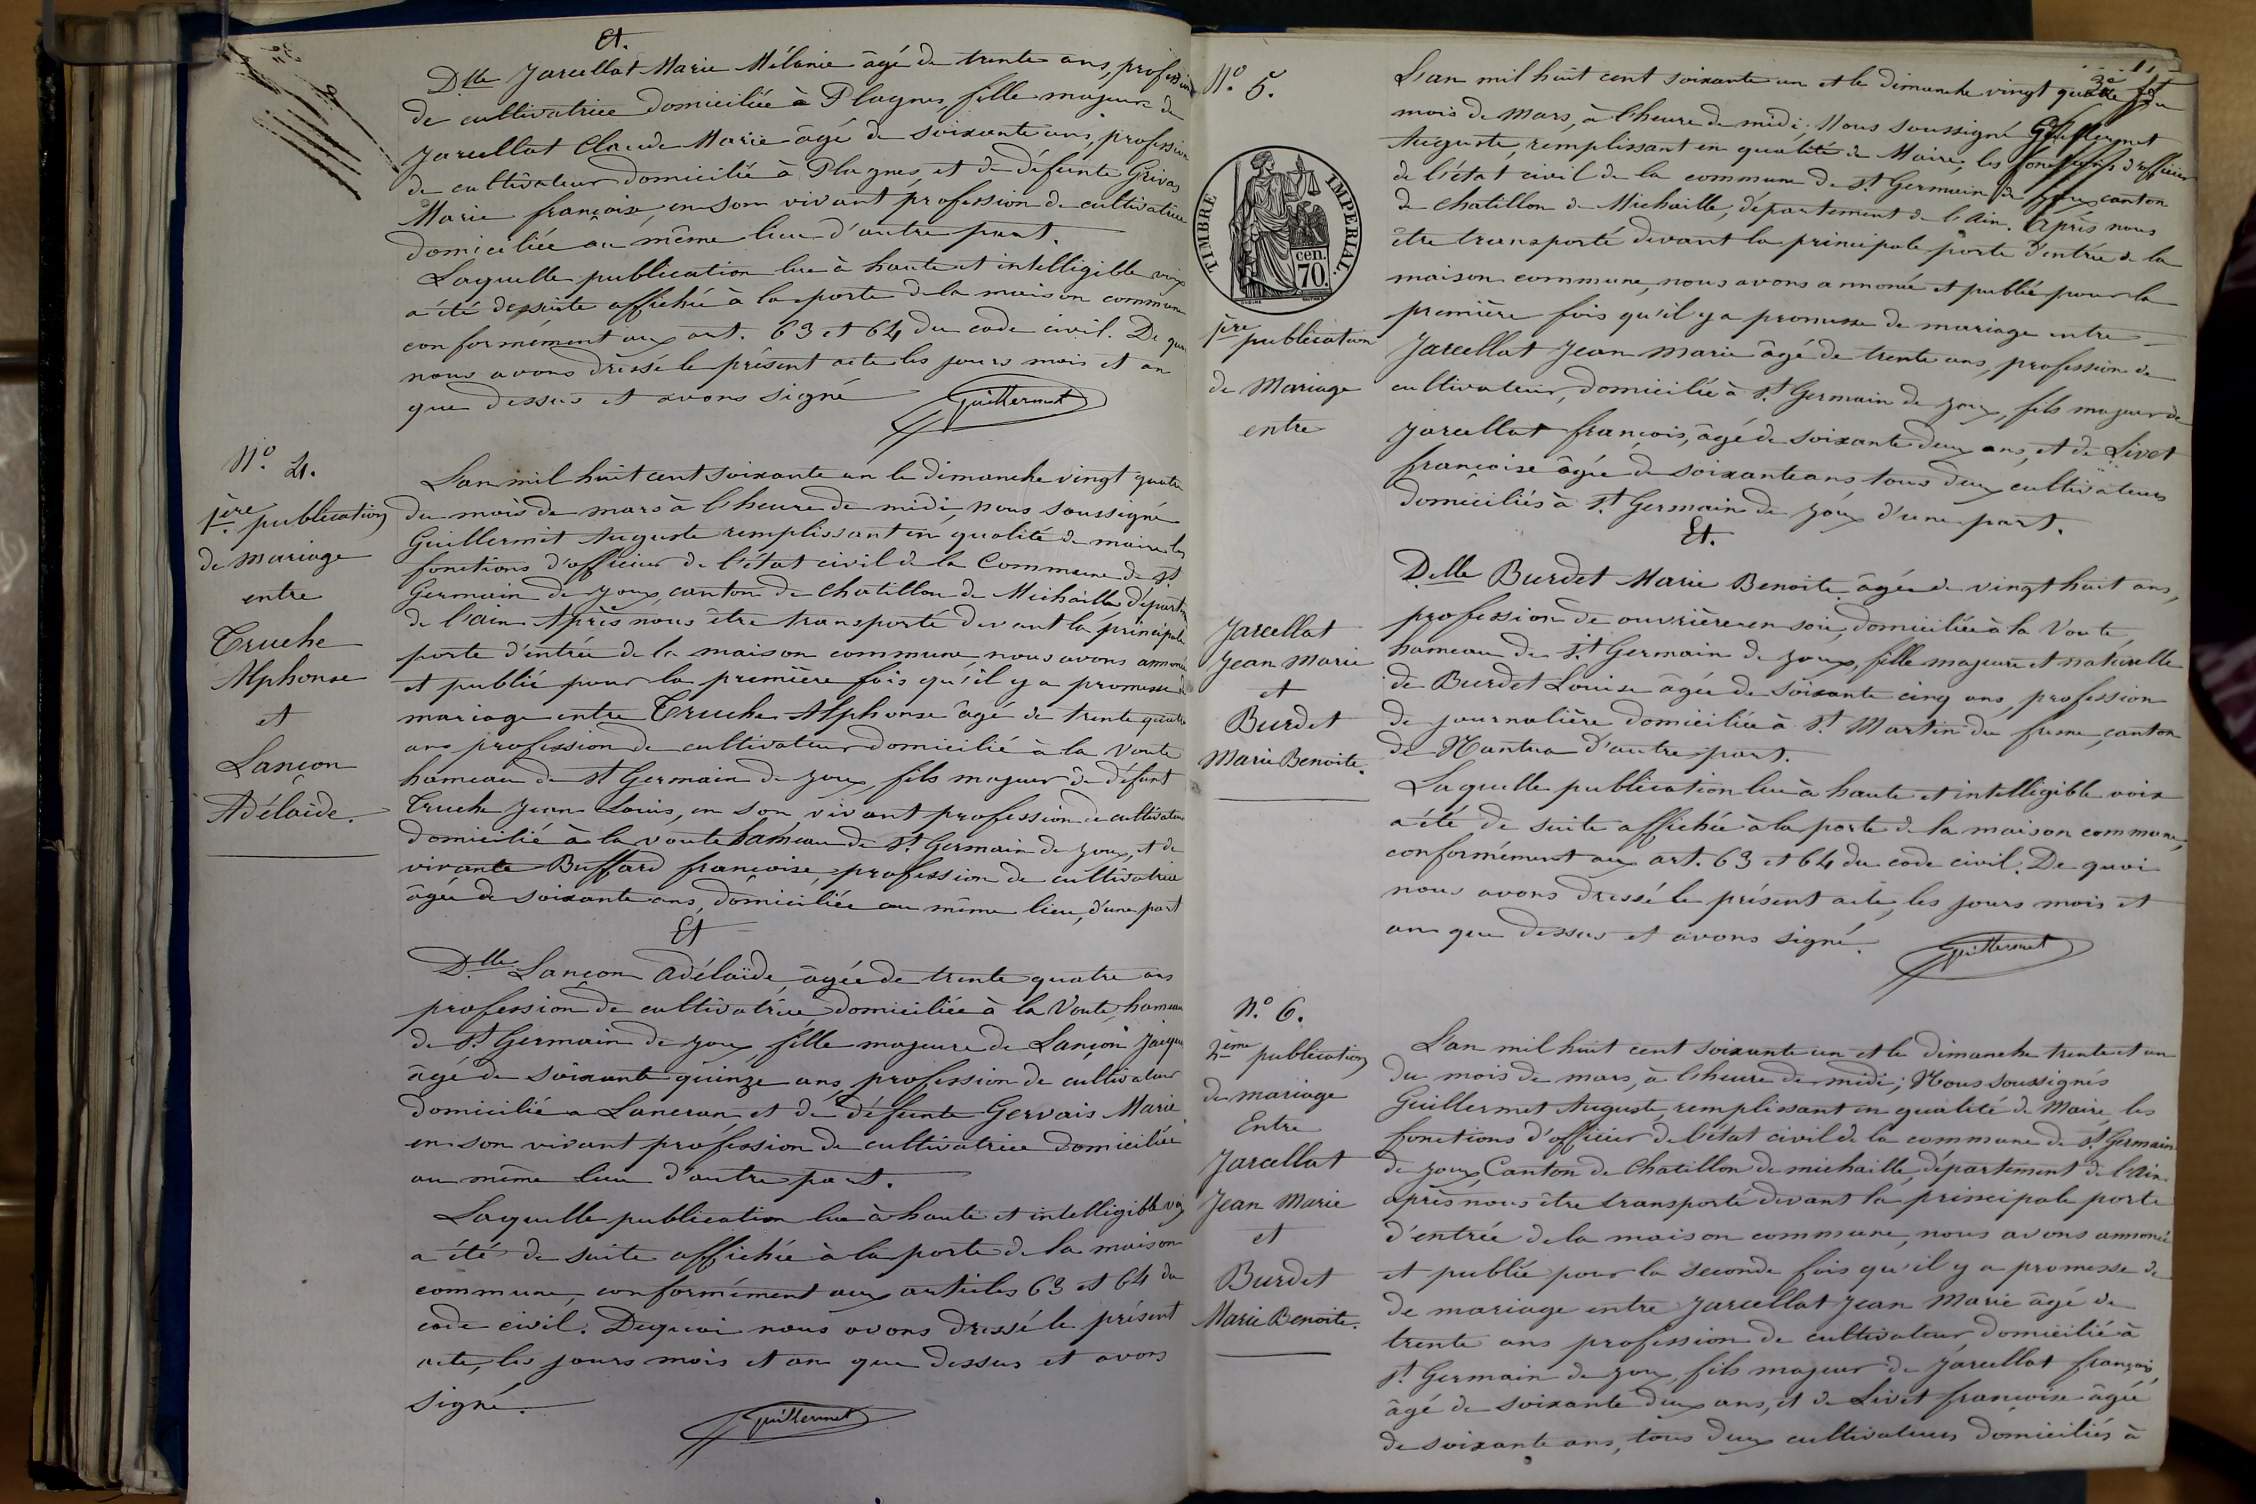 Et.
Dlle Jarcellat Marie Mélanie âgé de trente ans, profession
de cultivatrice domiciliée à Plagnes, fille majeure de
Jarcellat Claude Marie âgé de soixante ans, profession
de cultivateur domicilié à Plagnes, et de défunte Grivas
Marie françoise, en son vivant profession de cultivatrice
domiciliée au même lieu d'autre part.
Laquelle publication lue à haute et intelligible voix
a été de suite affichée à la porte de la maison commune
conformément aux art. 63 et 64 du code civil. De quoi
nous avons dressé le présent acte les jours mois et an
que dessus et avons signé
Guillermet
N° 4.
1ère publication
de mariage
entre
Truche
Alphonse
et
Lançon
Adélaïde.
L'an mil huit cent soixante un le dimanche vingt quatre
du mois de mars à l'heure de midi, nous soussigné
Guillermet Auguste remplissant en qualité de maire les
fonctions d'officier de l'état civil de la Commune de St
Germain de Joux, canton de Chatillon de Michaille, départ
de l'ain Après nous être transporté devant la principale
porte d'entrée de la maison commune, nous avons annoncé
et publié pour la première fois qu'il y a promesse de
mariage entre Truche Alphonse âgé de trente quatre
ans profession de cultivateur domicilié à la Voute
hameau de St Germain de Joux, fils majeur de défunt
Truche Jean Louis, en son vivant profession de cultivateur
domicilié à la voute hameau de St Germain de Joux, et de
vivante Buffard françoise, profession de cultivatrice
âgée de soixante ans, domiciliée au même lieu, d'une part
Et
Dlle Lançon Adélaïde, âgée de trente quatre ans
profession de cultivatrice domiciliée à la Voute, hameau
de St Germain de Joux, fille majeure de Lançon Jacques
âgé de soixante quinze ans, profession de cultivateur
domicilié a Lancran, et de défunte Gervais Marie
en son vivant profession de cultivatrice domiciliée
au même lieu d'autre part.
Laquelle publication lue à haute et intelligible voix
a été de suite affichée à la porte de la maison
commune, conformément aux articles 63 et 64 du
code civil. De quoi nous avons dressé le présent
acte, les jours mois et an que dessus et avons
signé.
Guillermet
N° 5.
TIMBRE IMPERIAL.
cen.
70.
1ère publication
de Mariage
entre
Jarcellat
Jean Marie
et
Burdet
Marie Benoite.
L'an mil huit cent soixante un et le dimanche vingt quatre du
mois de Mars, à l'heure de midi; Nous soussigné Guillermet
Auguste, remplissant en qualité de Maire, les fonctions d'officier
de l'état civil de la commune de St Germain de Joux, canton
de Chatillon de Michaille, département de l'Ain. Après nous
être transporté devant la principale porte d'entrée de la
maison commune, nous avons annoncé et publié pour la
première fois qu'il y a promesse de mariage entre
Jarcellat Jean Marie âgé de trente ans, profession de
cultivateur, domicilié à St Germain de Joux, fils majeur de
Jarcellat françois, âgé de soixante deux ans, et de Livet
françoise âgée de soixante ans, tous deux cultivateurs
domiciliés à St Germain de Joux d'une part.
Et.
Delle Burdet Marie Benoite âgée de vingt huit ans,
profession de ouvrière en soie, domiciliée à la Voute
hameau de St Germain de Joux, fille majeure et naturelle
de Burdet Louise âgée de soixante cinq ans, profession
de journalière domiciliée à St Martin du fresne, canton
de Nantua d'autre part.
Laquelle publication lue à haute et intelligible voix
a été de suite affichée à la porte de la maison commune,
conformément aux art. 63 et 64 du code civil. De quoi
nous avons dressé le présent acte, les jours mois et
an que dessus et avons signé.
Guillermet
N° 6.
2ème publication
de mariage
Entre
Jarcellat
Jean Marie
et
Burdet
Marie Benoite.
L'an mil huit cent soixante un et le dimanche trente et un
du mois de mars, à l'heure de midi; Nous soussignés
Guillermet Auguste, remplissant en qualité de Maire, les
fonctions d'officier de l'état civil de la commune de St Germain
de Joux, Canton de Chatillon de michaille, département de l'Ain.
après nous être transporté devant la principale porte
d'entrée de la maison commune, nous avons annoncé
et publié pour la seconde fois qu'il y a promesse de
de mariage entre Jarcellat Jean Marie âgé de
trente ans profession de cultivateur, domicilié à
St Germain de Joux, fils majeur de Jarcellat françois,
âgé de soixante deux ans, et de Livet françoise âgée
de soixante ans, tous deux cultivateurs domiciliés à